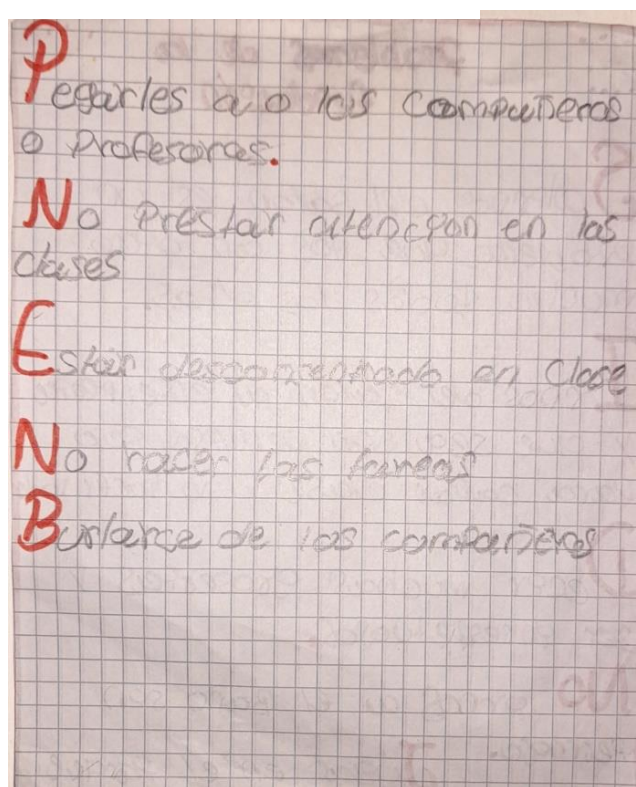 Pegarles a o los compañeros
o Profesores.
No Prestar atencion en las
clases
Estar desconcentrado en clase
No hacer las tareas
Burlarce de los compañeros